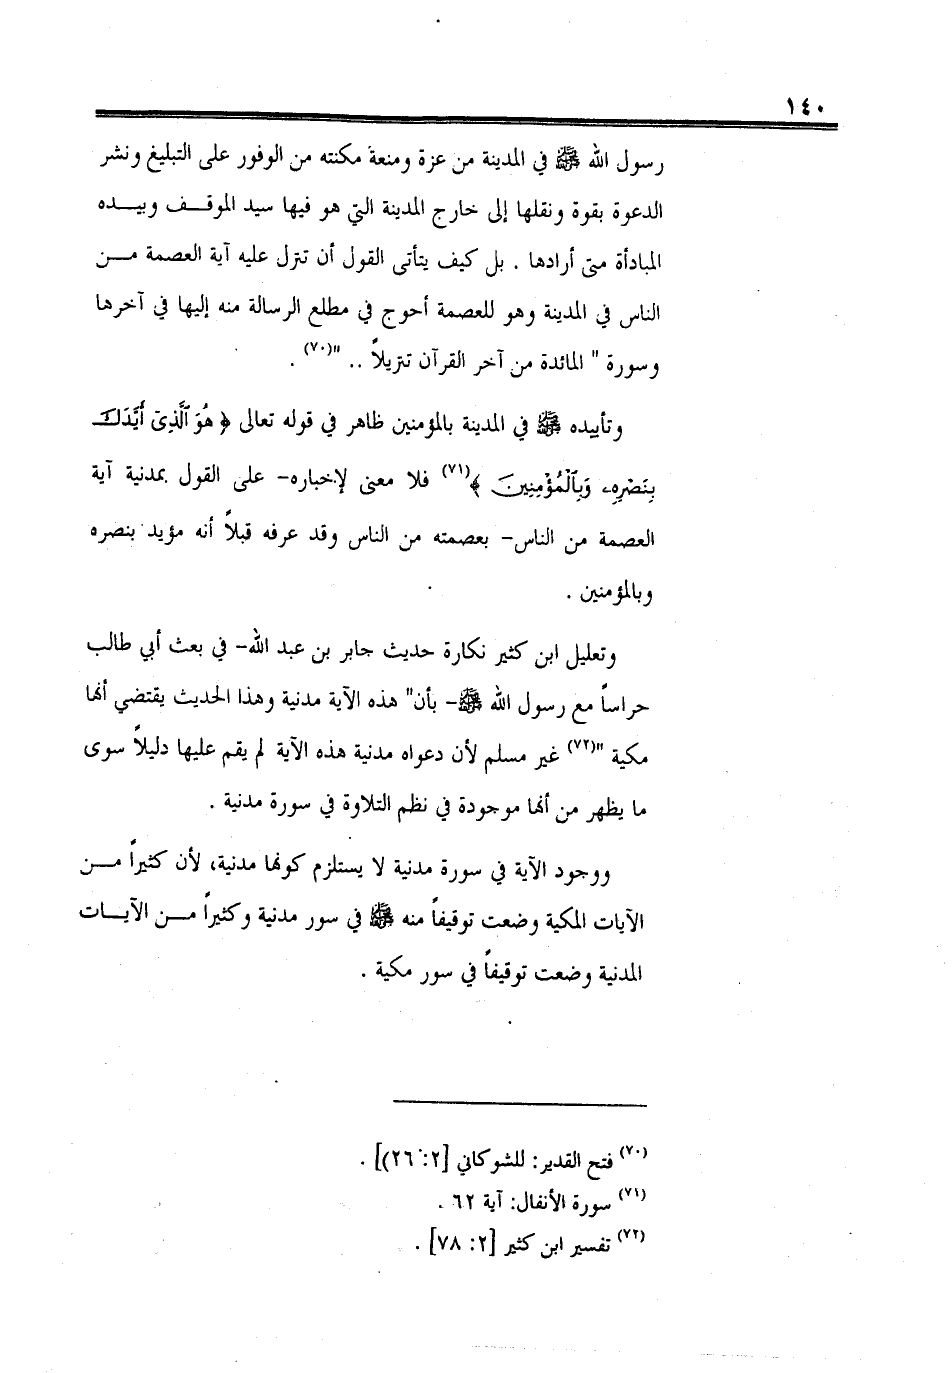 ١٤٠
رسول الله ﷺ في المدينة من عزة ومنعة مكنته من الوفور على التبليغ ونشر
الدعوة بقوة ونقلها إلى خارج المدينة التي هو فيها سيد الموقـــف وبيـــده
المبادأة متى أرادها . بل كيف يتأتى القول أن تنزل عليه آية العصمة مـــن
الناس في المدينة وهو للعصمة أحوج في مطلع الرسالة منه إليها في آخرها
وسورة " المائدة من آخر القرآن تنزيلاً .. "(٧٠) .
وتأييده ﷺ في المدينة بالمؤمنين ظاهر في قوله تعالى ﴿ هُوَ ٱلَّذِىٓ أَيَّدَكَ
بِنَصْرِهِۦ وَبِٱلْمُؤْمِنِينَ ﴾(٧١) فلا معنى لإخباره– على القول بمدنية آية
العصمة من الناس– بعصمته من الناس وقد عرفه قبلاً أنه مؤيد بنصره
وبالمؤمنين .
وتعليل ابن كثير نكارة حديث جابر بن عبد الله– في بعث أبي طالب
حراساً مع رسول الله ﷺ– بأن" هذه الآية مدنية وهذا الحديث يقتضي أنها
مكية "(٧٢) غير مسلم لأن دعواه مدنية هذه الآية لم يقم عليها دليلاً سوى
ما يظهر من أنها موجودة في نظم التلاوة في سورة مدنية .
ووجود الآية في سورة مدنية لا يستلزم كونها مدنية، لأن كثيراً مـــن
الآيات المكية وضعت توقيفاً منه ﷺ في سور مدنية وكثيراً مـــن الآيـــات
المدنية وضعت توقيفاً في سور مكية .
(٧٠) فتح القدير: للشوكاني [٢: ٢٦)] .
(٧١) سورة الأنفال: آية ٦٢ .
(٧٢) تفسير ابن كثير [٢: ٧٨] .